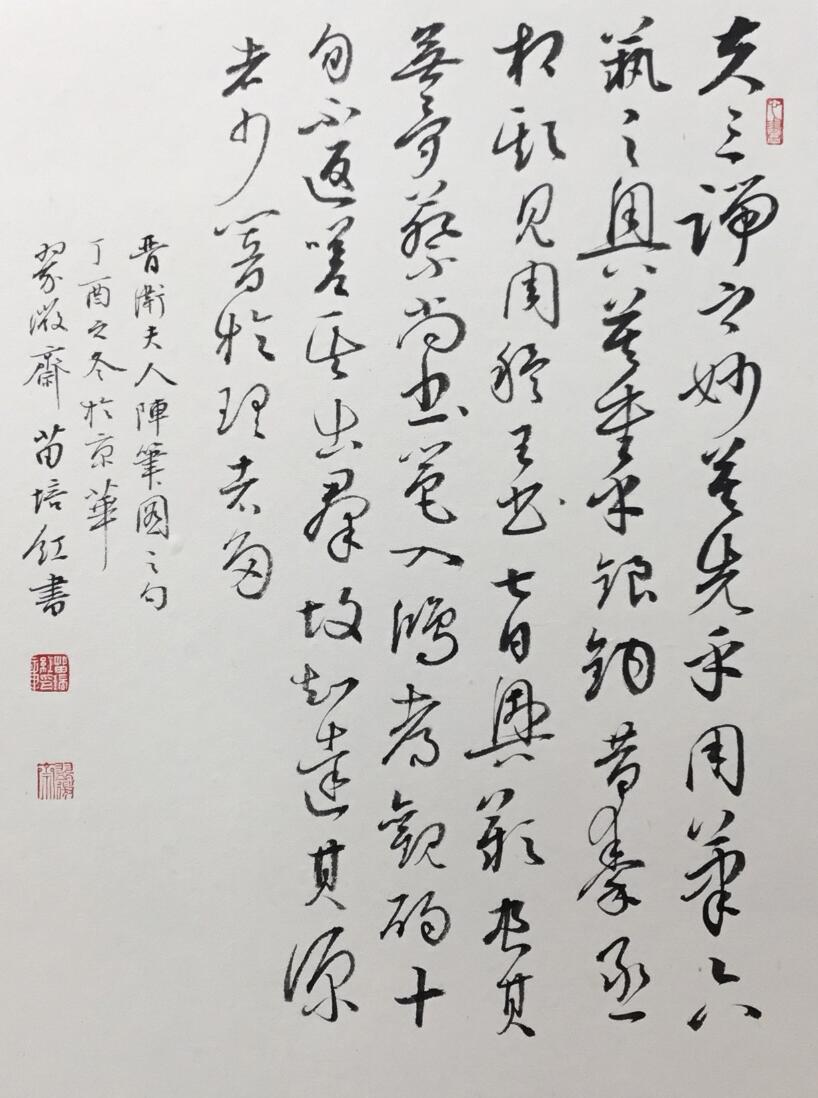 夫三端之妙莫先乎用筆六
藝之奧莫重乎銀鉤昔秦丞
相斯見周穆王書七日興歎患其
無骨蔡尚書邕入鴻都觀碣十
旬不返嗟其出羣故知達其源
者少闇於理者多
晋衛夫人陣筆圖之句
丁酉之冬於京華
翠微齋苗培红書